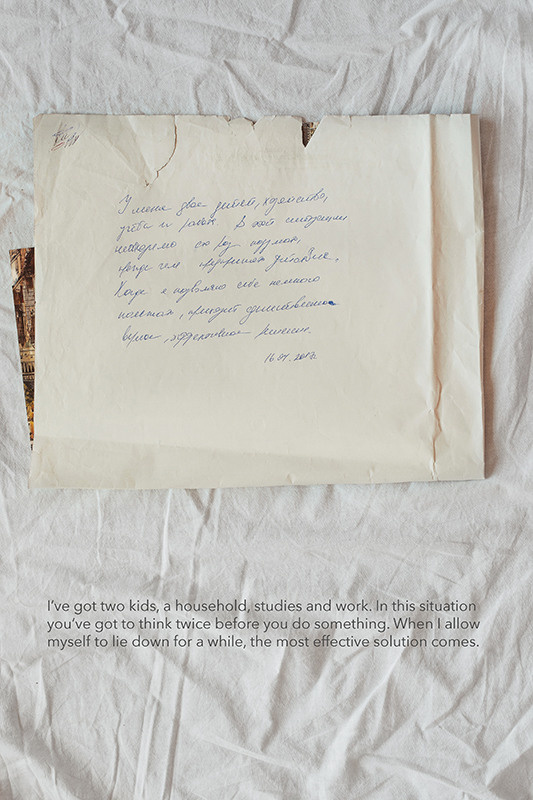 У меня двое детей, хозяйство,
учеба и работа. В этой ситуации
необходимо сто раз подумать,
прежде чем предпринять действие.
Когда я позволяю себе немного
полежать, приходит единственно
верное, эффективное решение.
I've got two kids, a household, studies and work. In this situation
you've got to think twice before you do something. When I allow
myself to lie down for a while, the most effective solution comes.